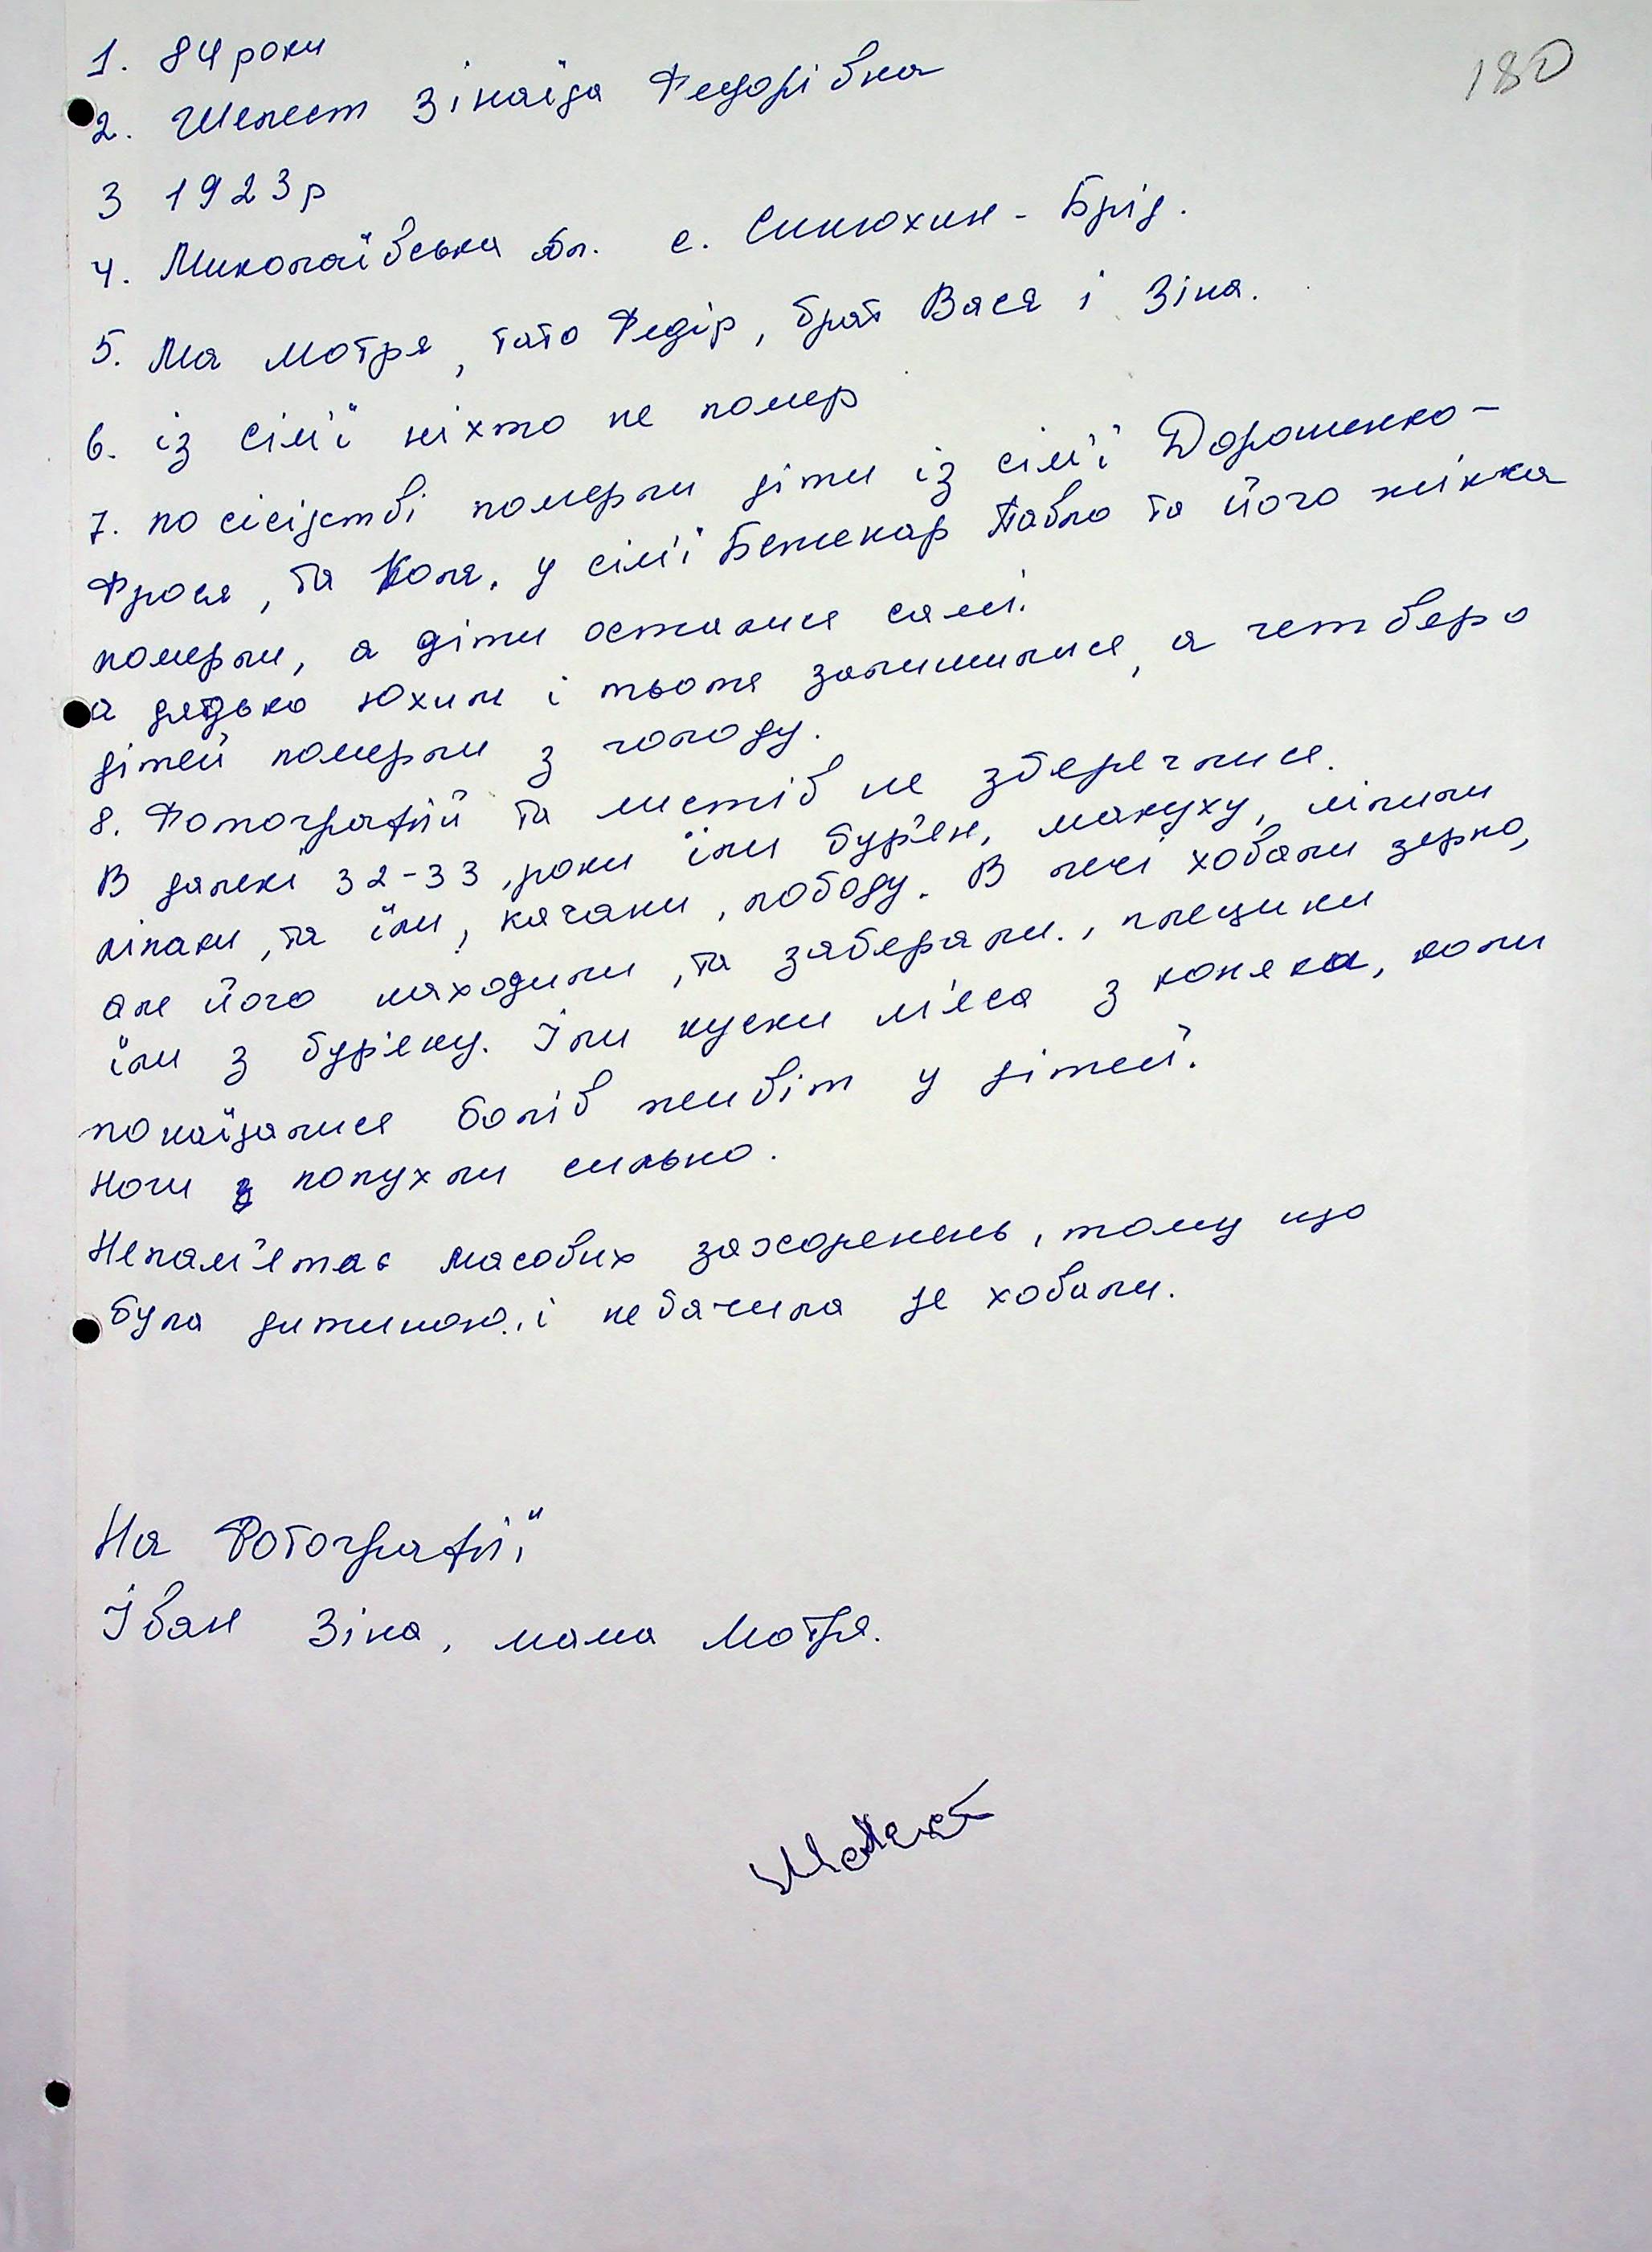 180
1. 84 роки
2. Шелест Зінаїда Федорівна
3 1923р
4. Миколаївська обл. с. Синюхин - Брід.
5. Ма Мотря, тато Федір, брат Вася і Зіна.
6. із сім'ї ніхто не помер
7. по сісідстві померли діти із сім'ї Дорошенко-
Фрося, та Коля. у сім'ї Бетекар Павло та його жінка
померли, а діти осталися самі.
а дядько Юхим і тьотя залишилися, а четверо
дітей померли з голоду.
8. Фотографій та листів не збереглися.
В далекі 32-33, роки їли бур'ян, макуху, ліпили
ліпаки, та їли, качани, лободу. В печі ховали зерно,
але його находили, та заберали., плецики
їли з бур'яну. Їли куски м'яса з коняка, коли
понаїдалися болів живіт у дітей.
Ноги попухли сильно.
Непам'ятає масових захоренень, тому що
була дитиною, і небачила де ховали.
На Фотографії
Іван Зіна, мама Мотря.
Шелест